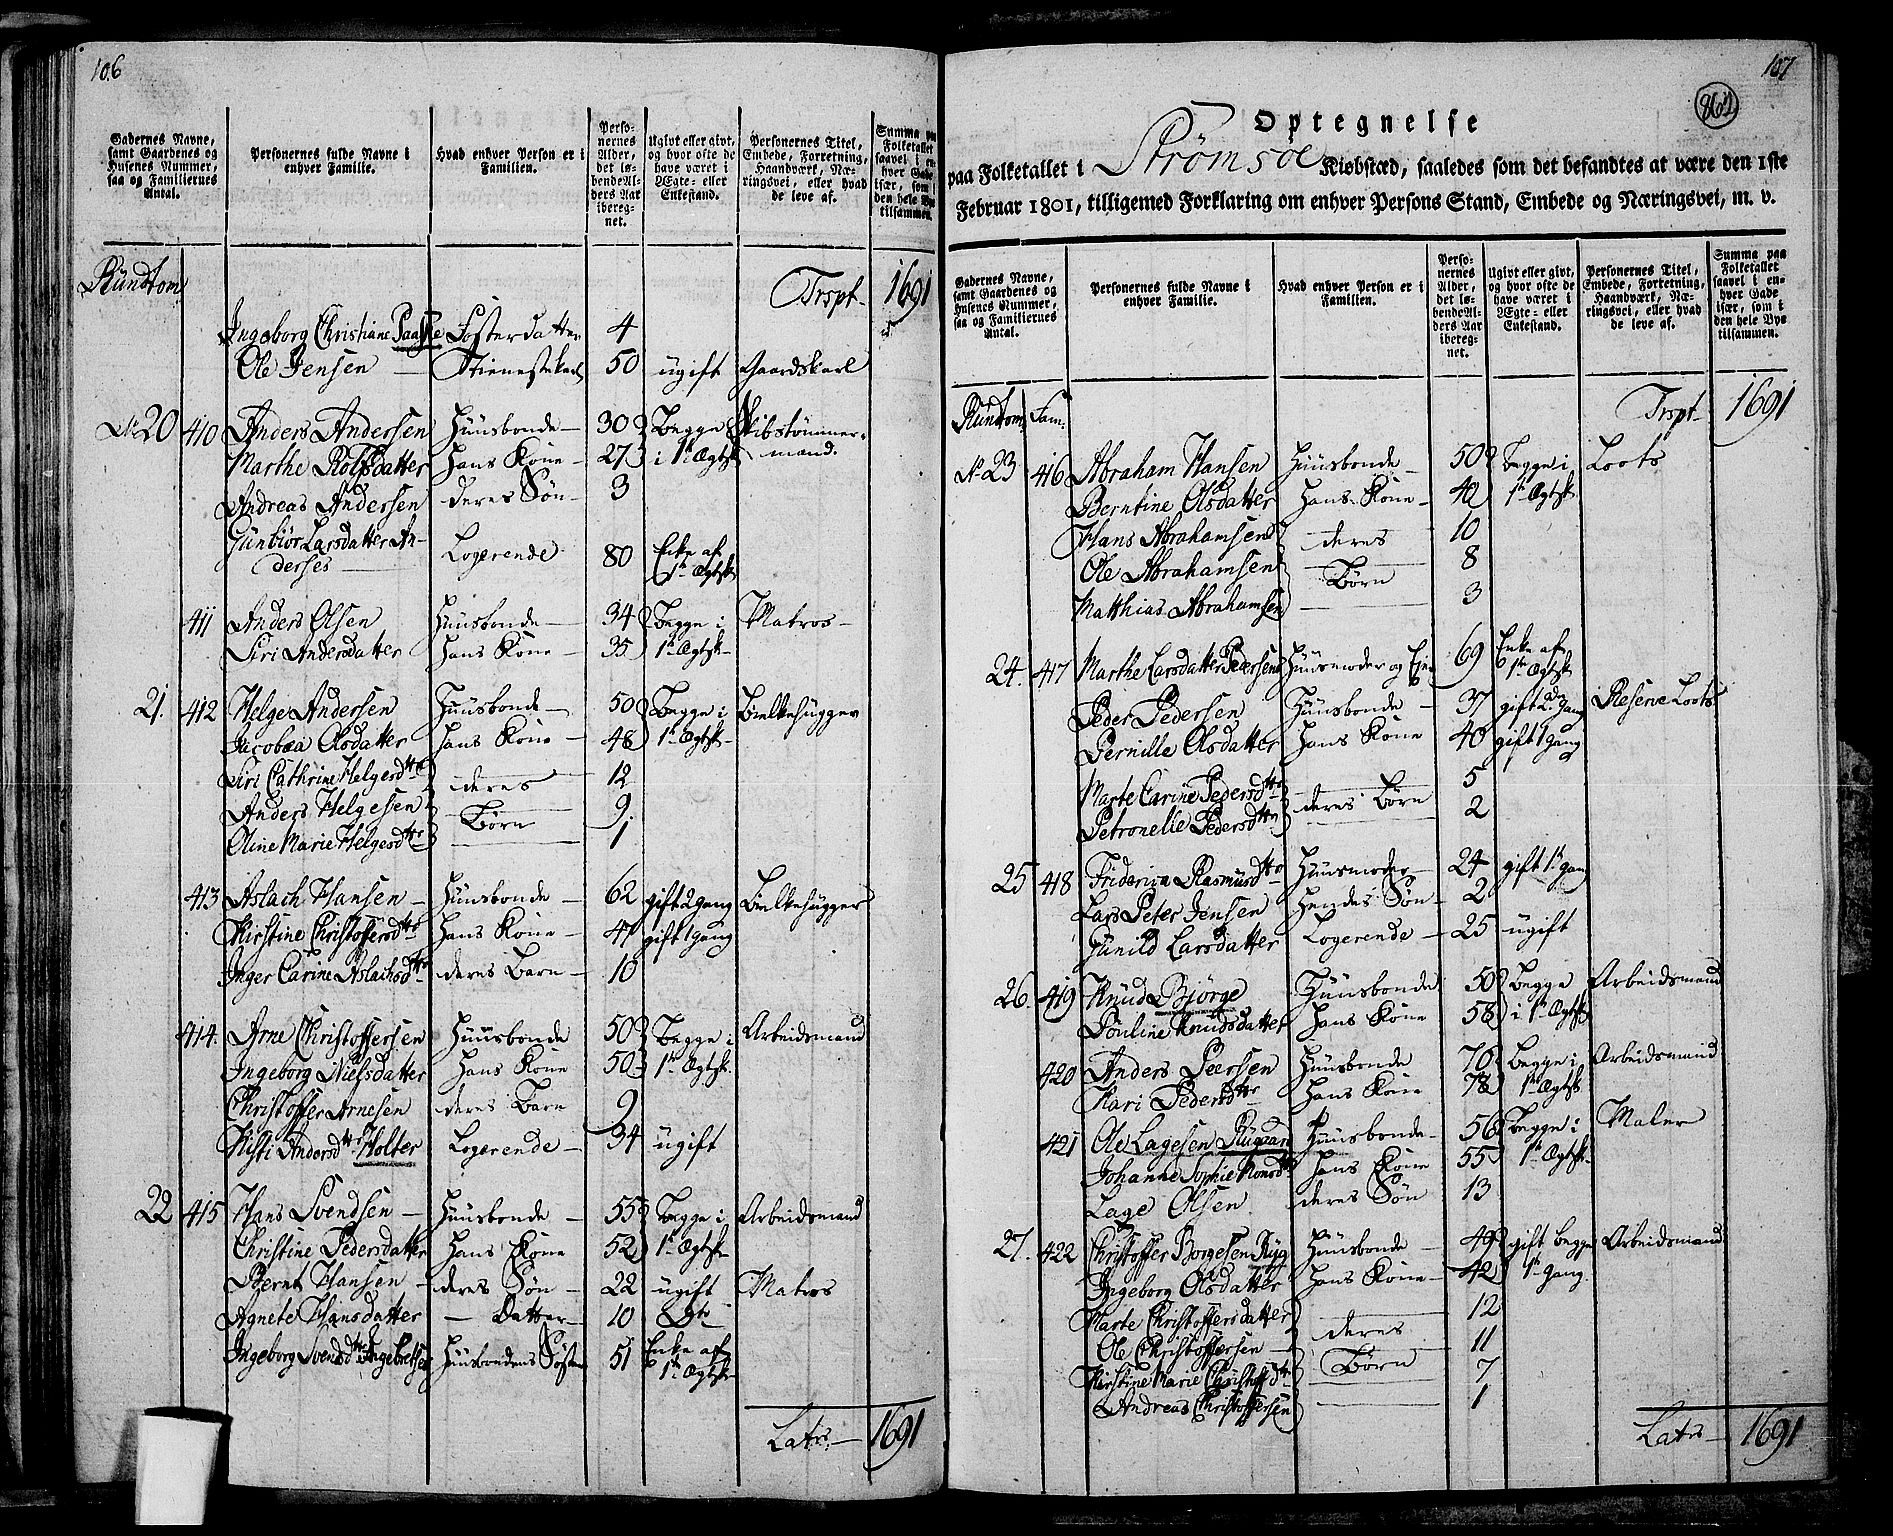 106
Gadernes Navne, samt Gaardenes og Husenes Nummer, saa og Familiernes Antal.
Personernes fulde Navne i enhver Familie.
Hvad enhver Person er i Familien.
Personernes Alder, det løbendeAlders Aar iberegnet.
Ugivt eller givt, og hvor ofte de have været i Ægte- eller Enkestand.
Personernes Titel, Embede, Forretning, Haandværk, Næringsvei, eller hvad de leve af.
Summa paa Folketallet saavel i enhver Gade især, som i den hele Bye tilsammen.
Rundtom Trspt. 1691
Ingeborg Christiane Paaske Fosterdatter 4
Ole Jensen Tienestekarl 50 ugift Gaardskarl
No 20 410 Anders Andersen Huusbonde 30 Begge Skibstømmer-
Marthe Rolfsdatter Hans Kone 27 i 1te Ægtsk. mand.
Andreas Andersen deres Søn 3
Gunbior Larsdatter An-
derses Logerende 80 Enke af 1te Ægtsk
411 Anders Olsen Huusbonde 34 Begge i Matros
Siri Andersdatter Hans Kone 35 1te Ægtsk
21. 412 Helge Andersen Huusbonde 50 Begge i Bielkehugger
Jacobæa Olsdatter Hans Kone 48 1te Ægtsk
Siri Cathrine Helgesdtr deres 12
Anders Helgesen 9.
Oline Marie Helgesdtr Børn 1
413 Aslach Hansen Huusbonde 62 gift 2 gang Bielkehugger
Kirstine Christoffersdtr Hans Kone 47 gift 1 gang
Inger Carine Aslachsdtr deres Barn 10
414. Arne Christoffersen Huusbonde 50 Begge i Arbeidsmand
Ingeborg Nielsdatter Hans Kone 50 1te Ægtsk.
Christoffer Arnesen deres Barn 9
Kisti Andersdtr Holter Logerende 34 ugift
22 415 Hans Svendsen Huusbonde 55 Begge i Arbeidsmand
Christine Pedersdatter Hans Kone 52 1te Ægtsk
Bernt Hansen deres Søn 22 ugift Matros
Agnete Hansdatter — Datter 10 Dto
Ingeborg Svendsdtr Ingebretsen Huusbondens Søster 51 Enke af 1te Ægtsk
Latrs 1691
107
862
Optegnelse
paa Folketallet i Strømsøe Kiøbstæd, saaledes som det befandtes at være den 1ste
Februar 1801, tilligemed Forklaring om enhver Persons Stand, Embede og Næringsvei, m. v.
Gadernes Navne, samt Gaardenes og Husenes Nummer, saa og Familiernes Antal.
Personernes fulde Navne i enhver Familie.
Hvad enhver Person er i Familien.
Personernes Alder, det løbendeAlders Aar iberegnet.
Ugivt eller givt, og hvor ofte de have været i Ægte- eller Enkestand.
Personernes Titel, Embede, Forretning, Haandværk, Næringsvei, eller hvad de leve af.
Summa paa Folketallet saavel i enhver Gade især, som i den hele Bye tilsammen.
Rundtom Fam. Trspt. 1691
No 23 416 Abraham Hansen Huusbonde 50 Begge i Loots
Berntine Olsdatter Hans Kone 40 1te Ægtsk
Hans Abrahamsen deres 10
Ole Abrahamsen 8
Matthias Abrahamsen Børn 3
24. 417 Marthe Larsdatter Pedersens Huusmoder og Eier 69 Enke af 1te Ægtsk
Peder Pedersen Huusbonde 37 gift 2 Gang Reserve Loots
Pernille Olsdatter Hans Kone 40 gift 1 gang
Marte Carine Pedersdtr deres Børn 5
Petronelle Pedersdtr 2
25 418 Friderica Rasmusdtr Huusmoder 24 gift 1te gang
Lars Peter Jensen Hendes Søn 2
Gunild Larsdatter Logerende 25 ugift
26. 419 Knud Bjørge Huusbonde 50 Begge Arbeidsmand
Pouline Knudsdatter Hans Kone 58 i 1te Ægtsk
420 Anders Peersen Huusbonde 76 Begge i Arbeidsmand
Kari Pedersdtr Hans Kone 78 1te Ægtsk
421 Ole Lagesen Huusbonde 56 Begge i Maler
Johanne Sophie Hans Kone 55 1te Ægtsk
Lage Olsen deres Søn 13
27. 422 Christoffer Borgesen Ryg Huusbonde 49 gift Begge Arbeidsmand
Ingeborg Olsdatter Hans Kone 42 1te Gang
Marte Christoffersdatter deres 12
Ole Christoffersen 11
Kirstine Marie Christoffsdtr Børn 7
Andreas Christoffersen 1
Latrs 1691